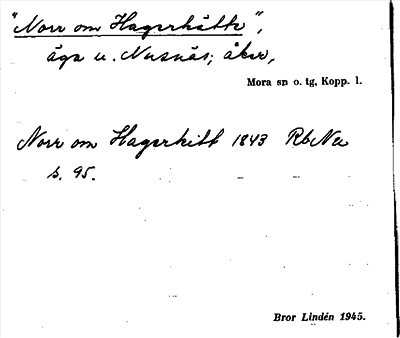 "Norr om Hagerhätte",
äga u. Nusnäs; åker,
Mora sn o. tg, Kopp. l.
Norr om Hagerhitt 1843 RbNu
s. 95.
Bror Lindén 1945.